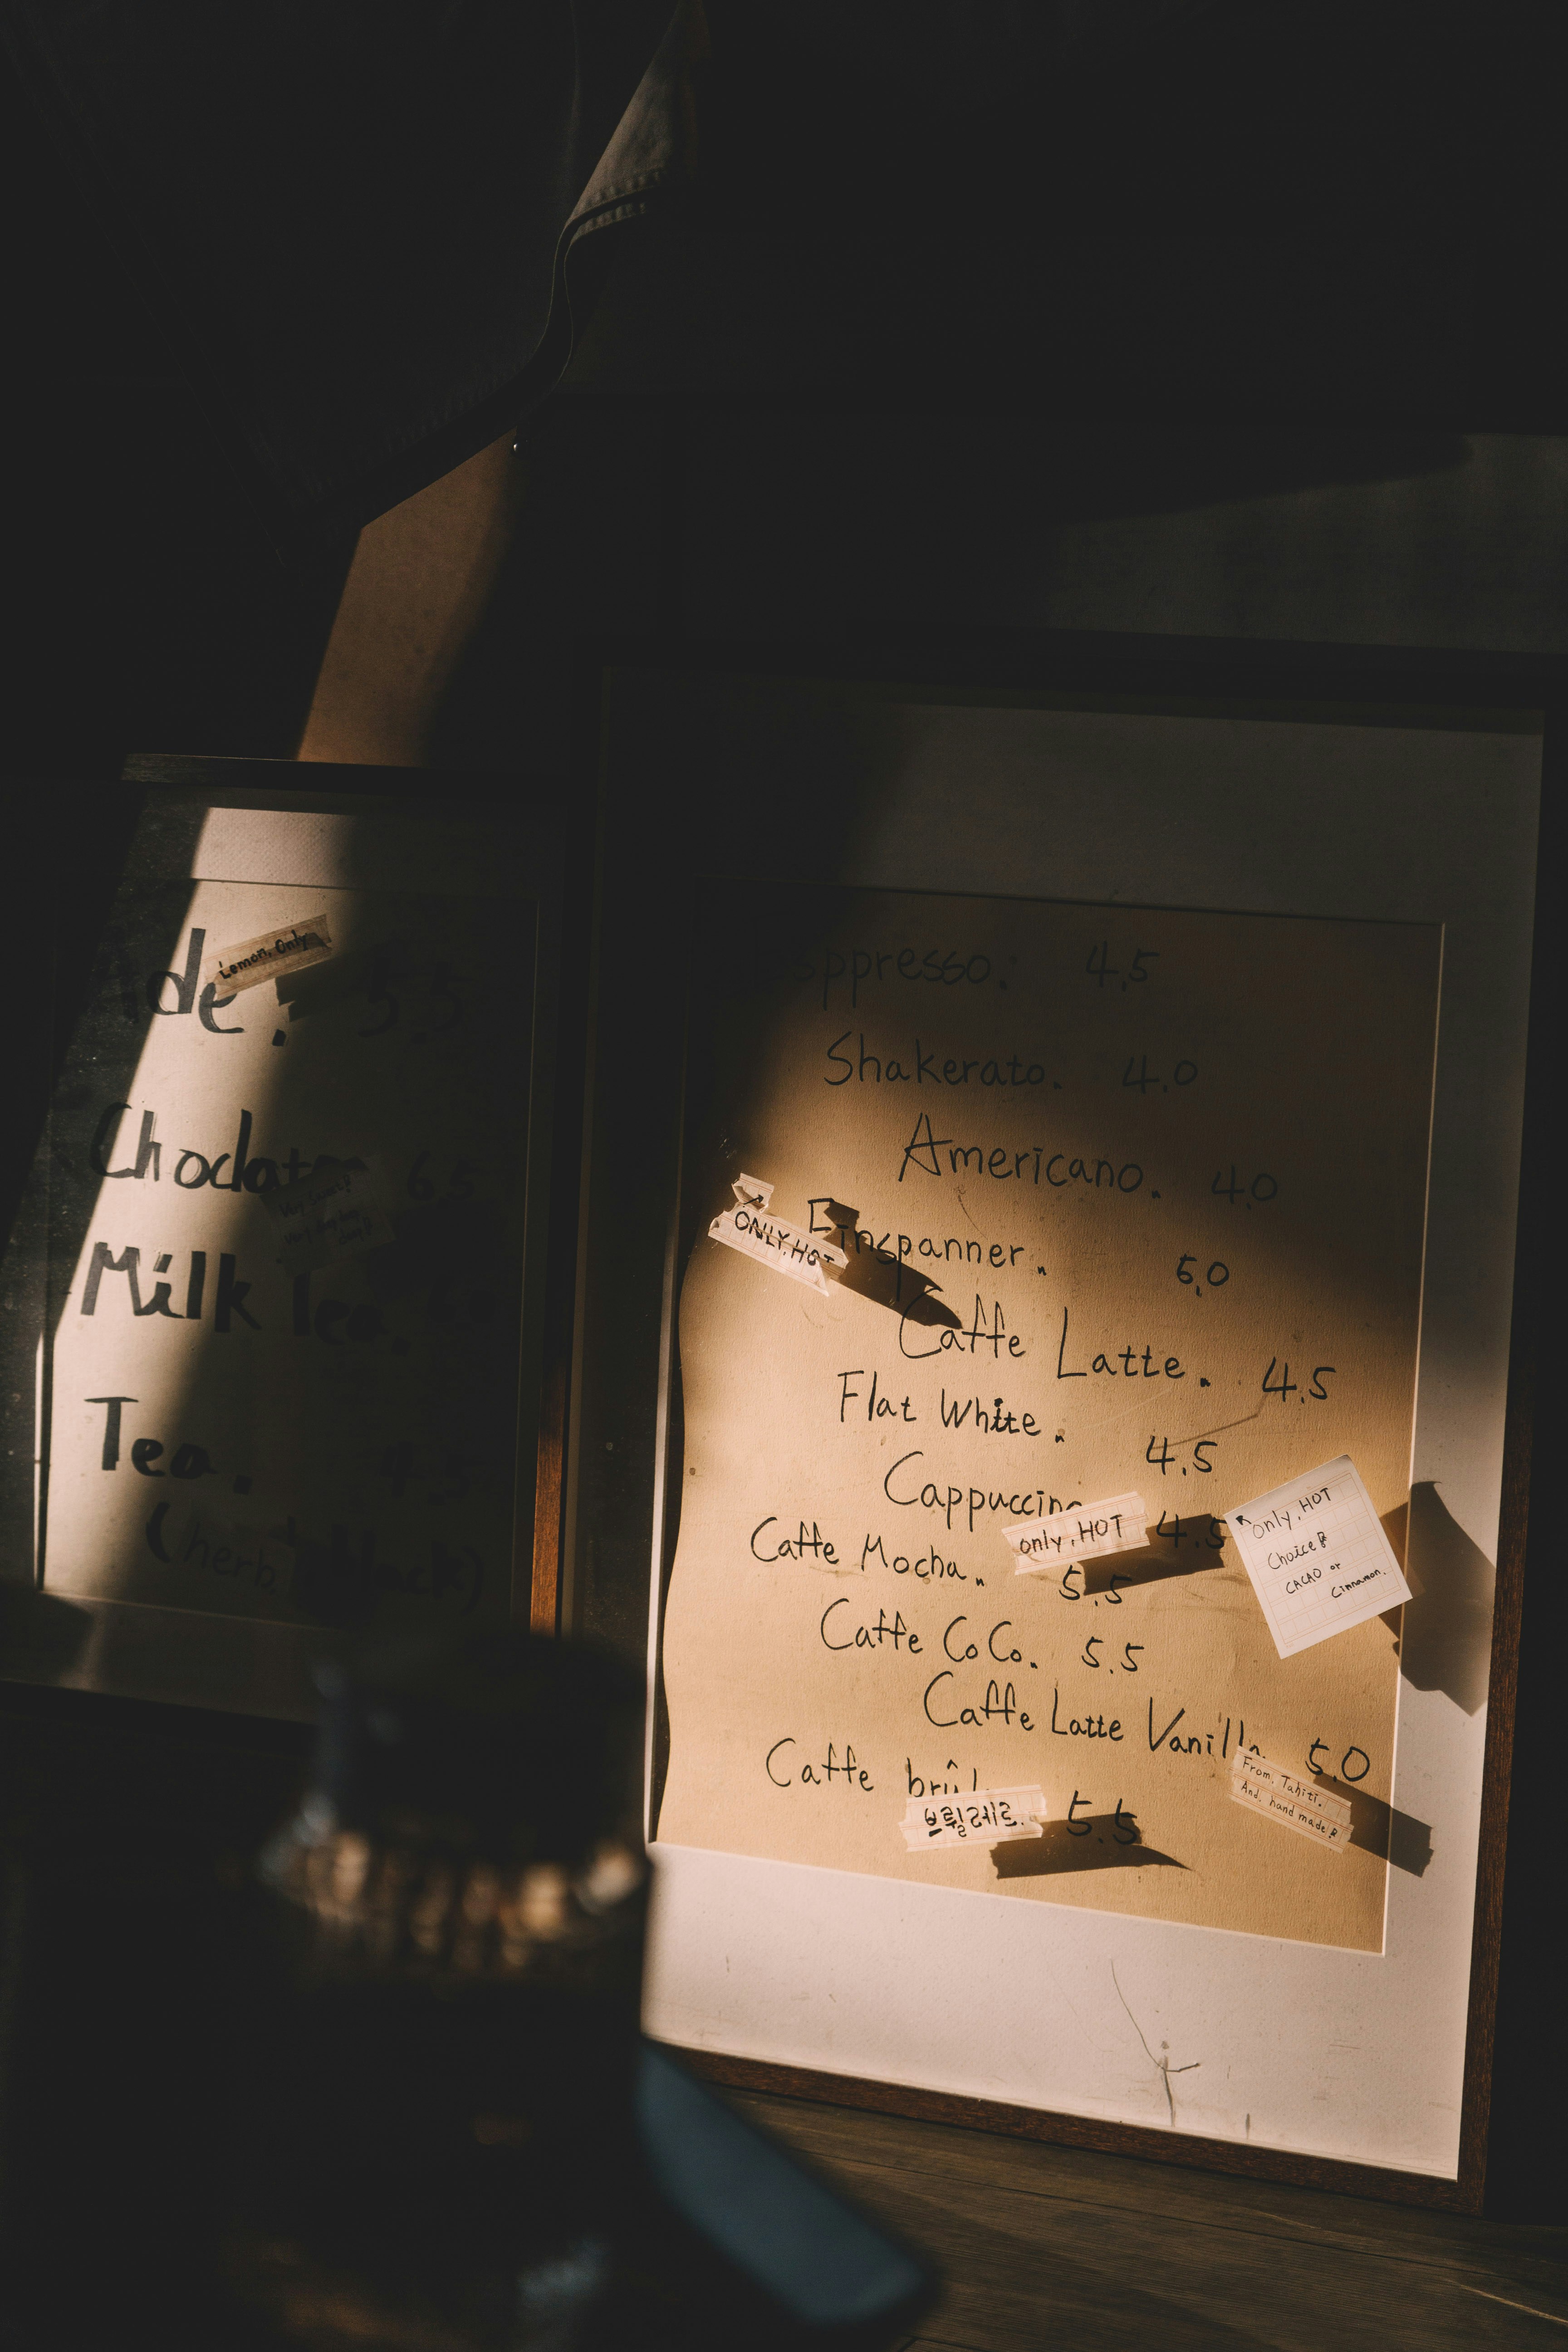 Lemon, Only
ade. 5.5
Choclate 6.5
Milk Tea.
Tea. 4.5
(herb, black)
sppresso. 4.5
Shakerato. 4.0
Americano. 4.0
ONLY, HOT
Einspanner. 5.0
Caffe Latte. 4.5
Flat White. 4.5
Cappuccino 4.5
only, HOT
only, HOT
Choice
CACAO or
Cinnamon.
Caffe Mocha. 5.5
Caffe CoCo. 5.5
Caffe Latte Vanilla 5.0
From, Tahiti.
And, hand made
Caffe brûl 5.5
브륄레르.